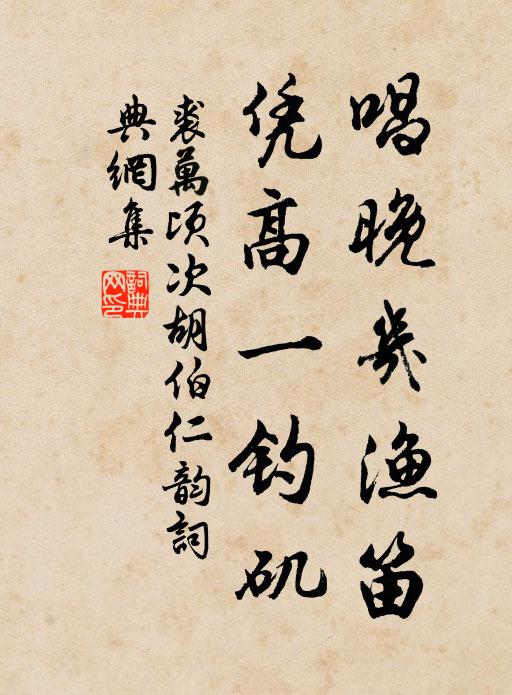 唱晚幾漁笛
凭高一钓矶
裘萬頃次胡伯仁韵詞
典網集
詞典网印